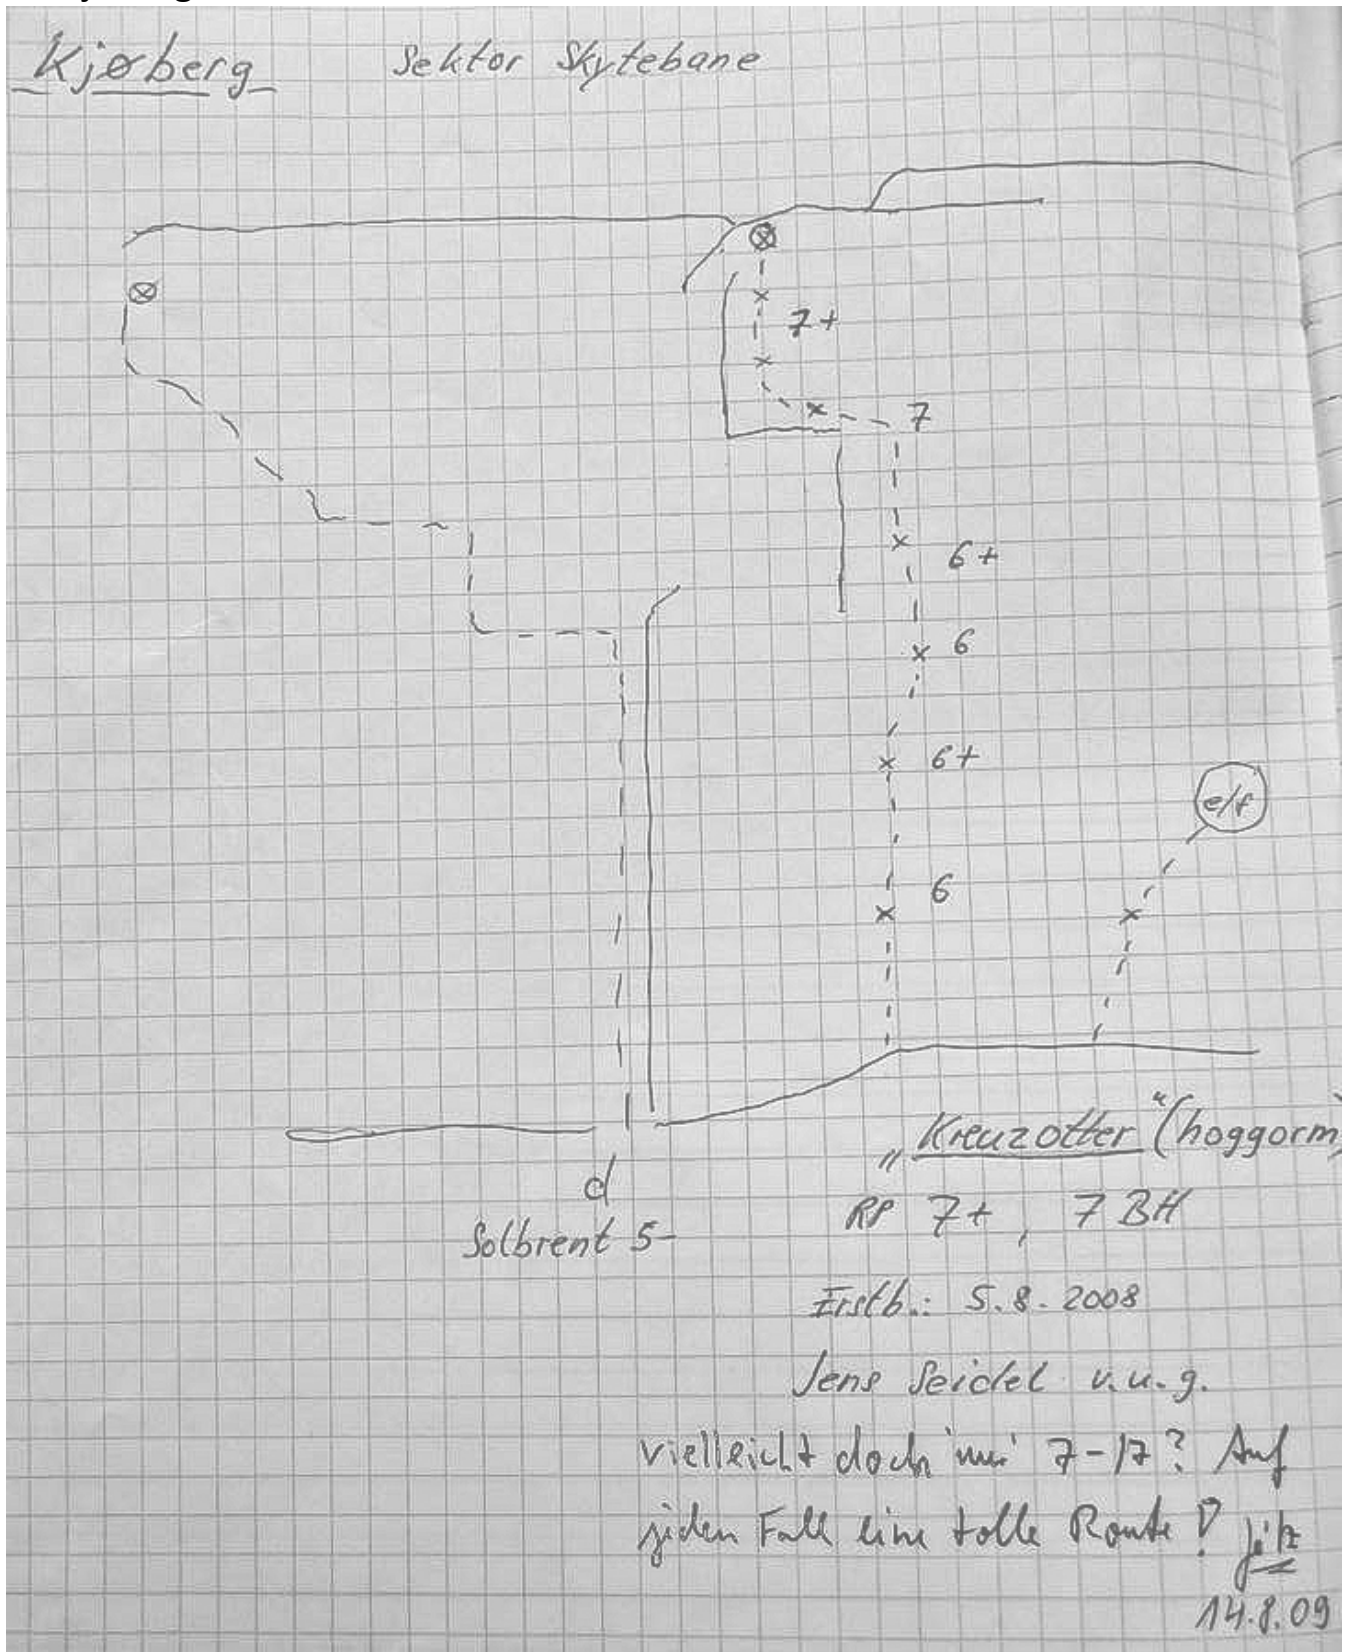 Kjørberg
Sektor Skytebane
7+
7
6+
6
6+
6
e/f
d
Solbrent 5-
„Kreuzotter“ (hoggorm)
RP 7+, 7 BH
Erstb.: 5.8.2008
Jens Seidel v.u.g.
vielleicht doch nur 7-/7? Auf
jeden Fall eine tolle Route!
14.8.09